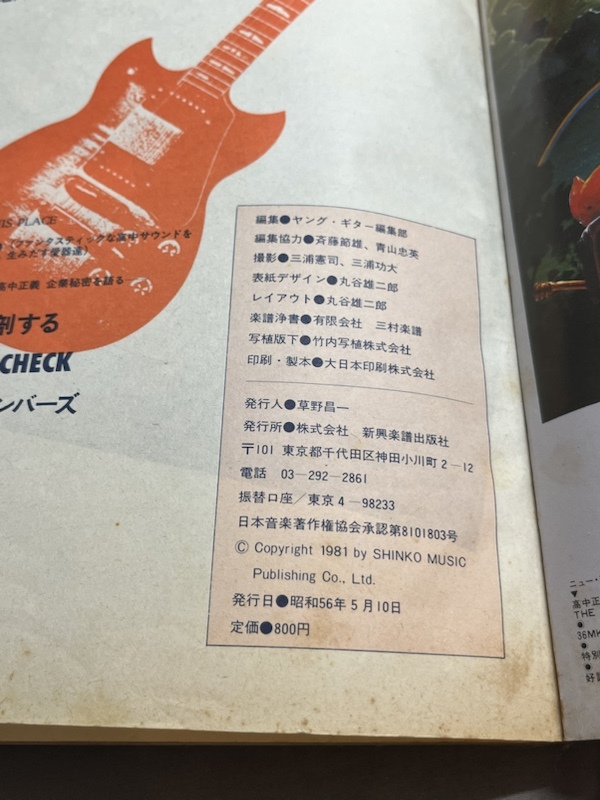 IS PLACE
(ファンタスティックな高中サウンドを
生みだす愛器達)
高中正義 企業秘密を語る
剖する
CHECK
ンバーズ
編集●ヤング・ギター編集部
編集協力●斉藤節雄、青山忠英
撮影●三浦憲司、三浦功大
表紙デザイン●丸谷雄二郎
レイアウト●丸谷雄二郎
楽譜浄書●有限会社 三村楽譜
写植版下●竹内写植株式会社
印刷・製本●大日本印刷株式会社
発行人●草野昌一
発行所●株式会社 新興楽譜出版社
〒101 東京都千代田区神田小川町2−12
電話 03−292−2861
振替口座/東京4−98233
日本音楽著作権協会承認第8101803号
© Copyright 1981 by SHINKO MUSIC
Publishing Co., Ltd.
発行日●昭和56年5月10日
定価●800円
ニュー・
▼
高中正
THE
●
36MK
●
特別
●
好評